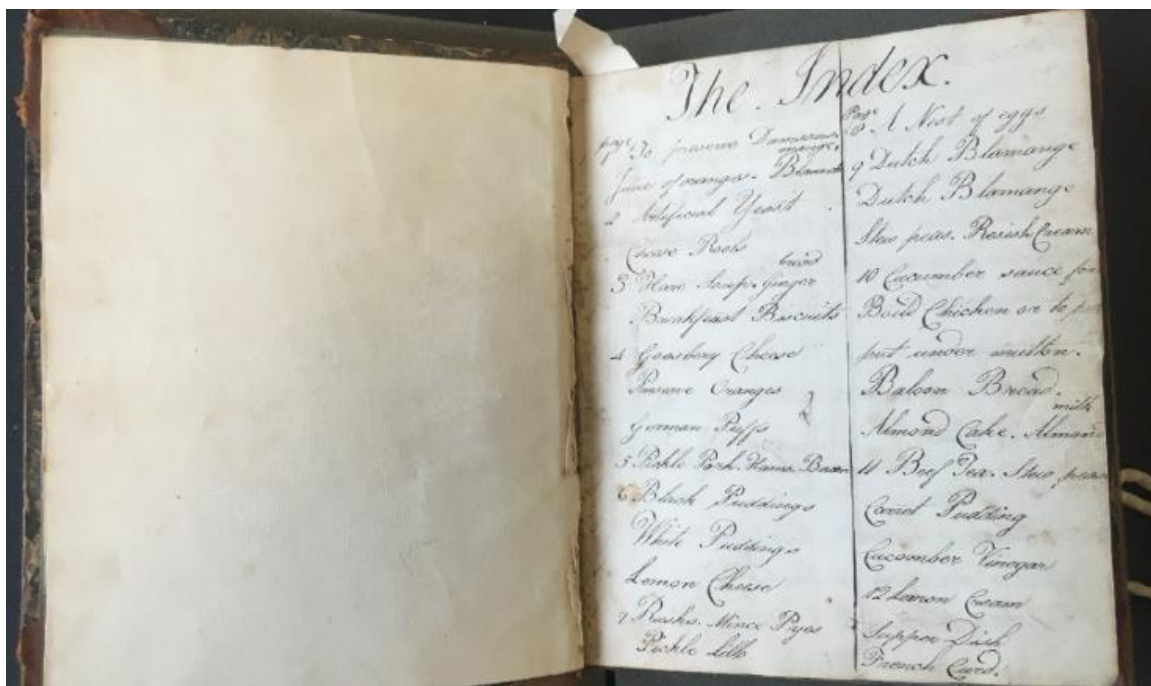 The . Index.
page To preserve Damsons.
mange.
Juice of oranges - Blaumange
2 Artificial Yeast
Cheese Rooks
bread
3 Hare Soup. Ginger
Breakfast Biscuits
4 Goosbery Cheese
Preserve Oranges
German Puffs
5 Pickle Pork. Hams. Bacon
6 Black Puddings
White Puddings
Lemon Cheese
7 Rusks. Mince Pyes
Pickle
Page
8 A Nest of eggs
9 Dutch Blamange
Dutch Blamange
Stew peas. Cream
10 Cucumber sauce for
Boild Chicken or to
put under mutton.
Baloon Bread.
milk
Almond Cake. Almond
11 Beef Tea. Stew
Carrot Pudding
Cucomber Vinegar
12 Lemon Cream
Supper Dish
French Curd.